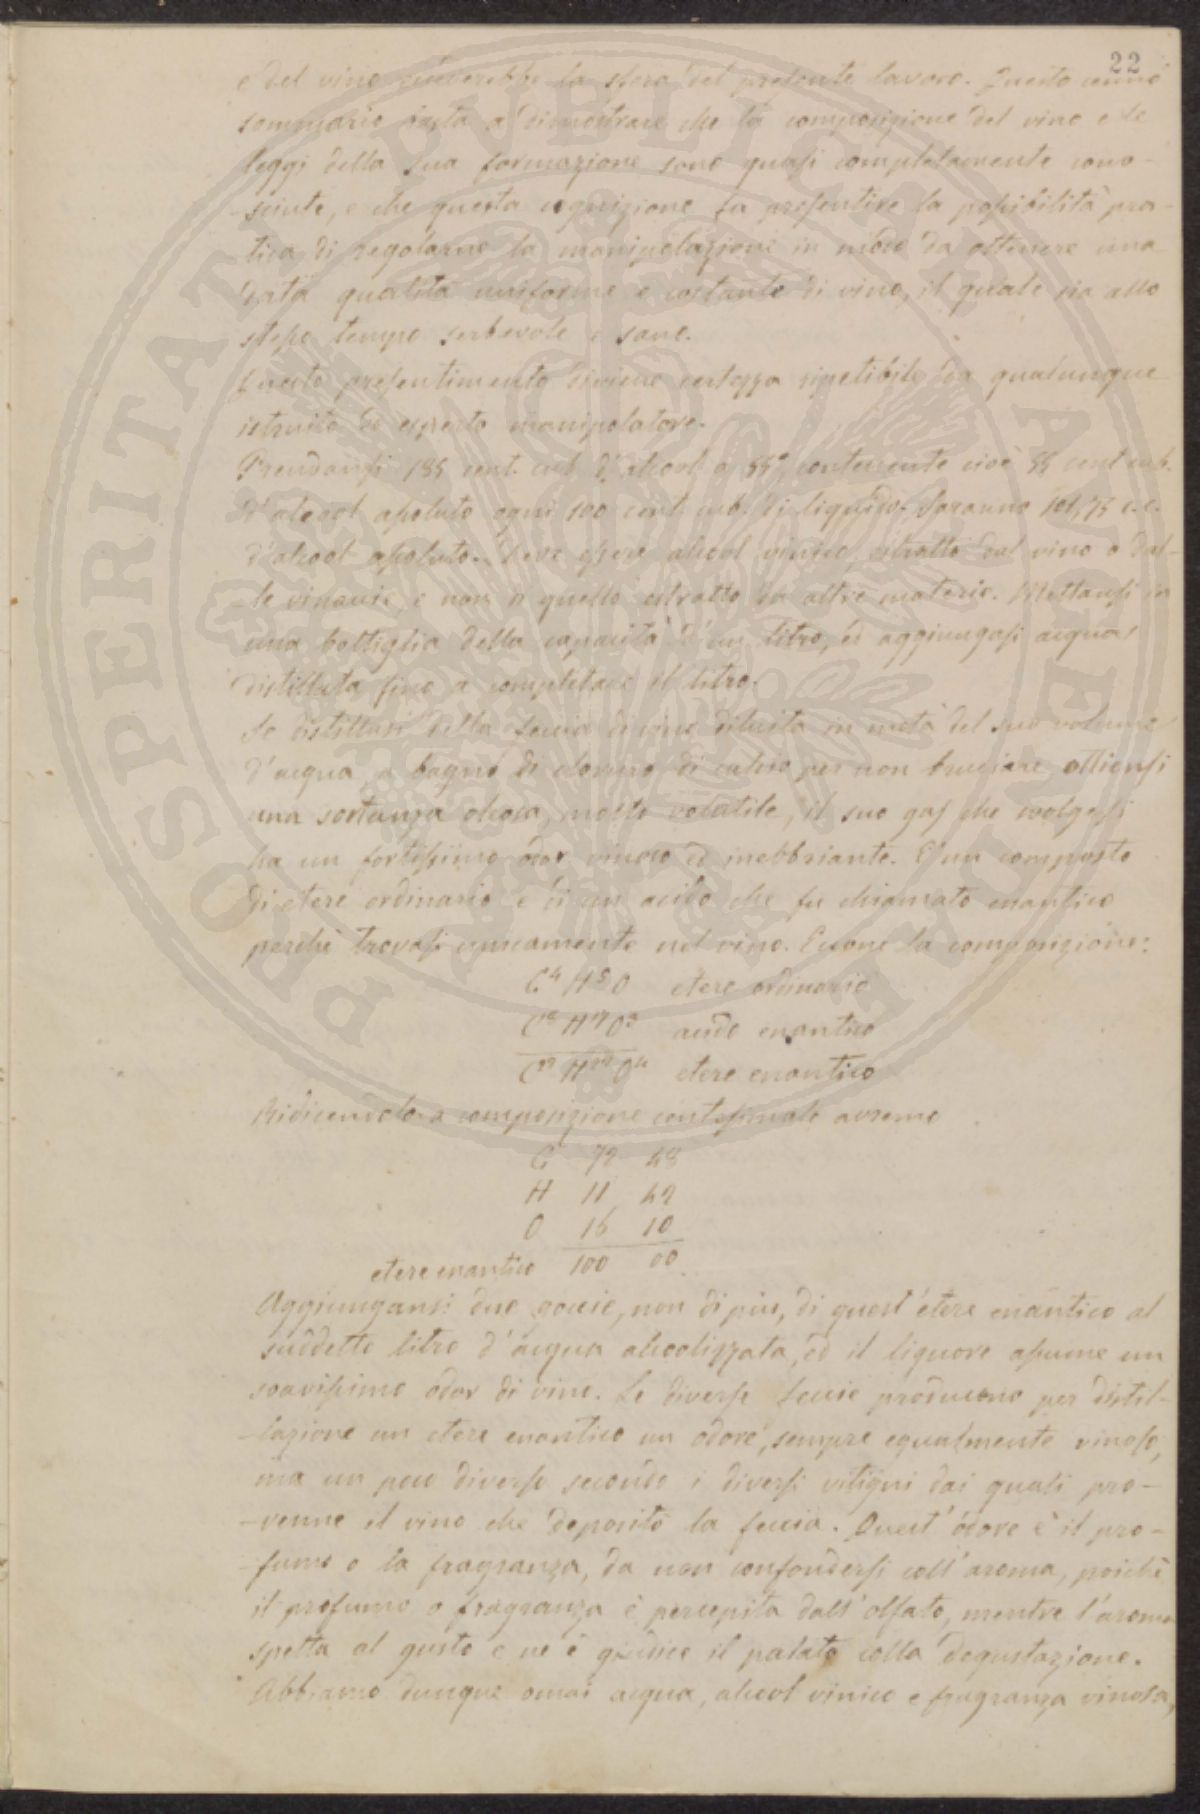 22
e del vino eccederebbe la sfera del presente lavoro. Questo cenno
sommario basta a dimostrare che la composizione del vino e le
leggi della sua formazione sono quasi completamente cono-
-sciute, e che questa cognizione fa presentire la possibilità pra-
-tica di regolarne la manipolazione in modo da ottenere una
data qualità uniforme e costante di vino, il quale sia allo
stesso tempo serbevole e sano.
Questo presentimento diviene certezza ripetibile da qualunque
istruito ed esperto manipolatore.
Prendansi 185 cent. cub. d'alcool a 55°, contenente cioè 55 cent. cub.
d'alcool assoluto ogni 100 cent. cub. di liquido. Saranno 101,75 c.c.
d'alcool assoluto. Deve essere alcool vinico, estratto dal vino o dal-
-le vinacie, e non quello estratto da altre materie. Mettansi in
una bottiglia della capacità d'un litro, ed aggiungasi acqua
distillata fino a completare il litro.
Se distillasi della feccia di vino diluita in metà del suo volume
d'acqua a bagno di cloruro di calcio per non bruciare ottiensi
una sostanza oleosa, molto volatile, il suo gas che svolgesi
ha un fortissimo odor vinoso ed inebbriante. E' un composto
di etere ordinario e di un acido che fu chiamato enantico
perchè trovasi unicamente nel vino. Eccone la composizione:
C⁴ H⁵ O etere ordinario
acido enantico
etere enantico
Riducendola a composizione centesimale avremo
C 72 48
H 11 42
O 16 10
etere enantico 100 00
Aggiungansi due goccie, non di più, di quest'etere enantico al
suddetto litro d'acqua alcoolizzata, ed il liquore assume un
soavissimo odor di vino. Le diverse feccie producono per distil-
-lazione un etere enantico un odore, sempre egualmente vinoso,
ma un poco diverso secondo i diversi vitigni dai quali pro-
-venne il vino che depositò la feccia. Quest'odore è il pro-
-fumo o la fragranza, da non confondersi coll'aroma, poichè
il profumo o fragranza è percepita dall'olfato, mentre l'aroma
spetta al gusto e ne è giudice il palato colla degustazione.
Abbiamo dunque omai acqua, alcool vinico e fragranza vinosa,
PROSPERITATI PVBLICAE AVGENDAE